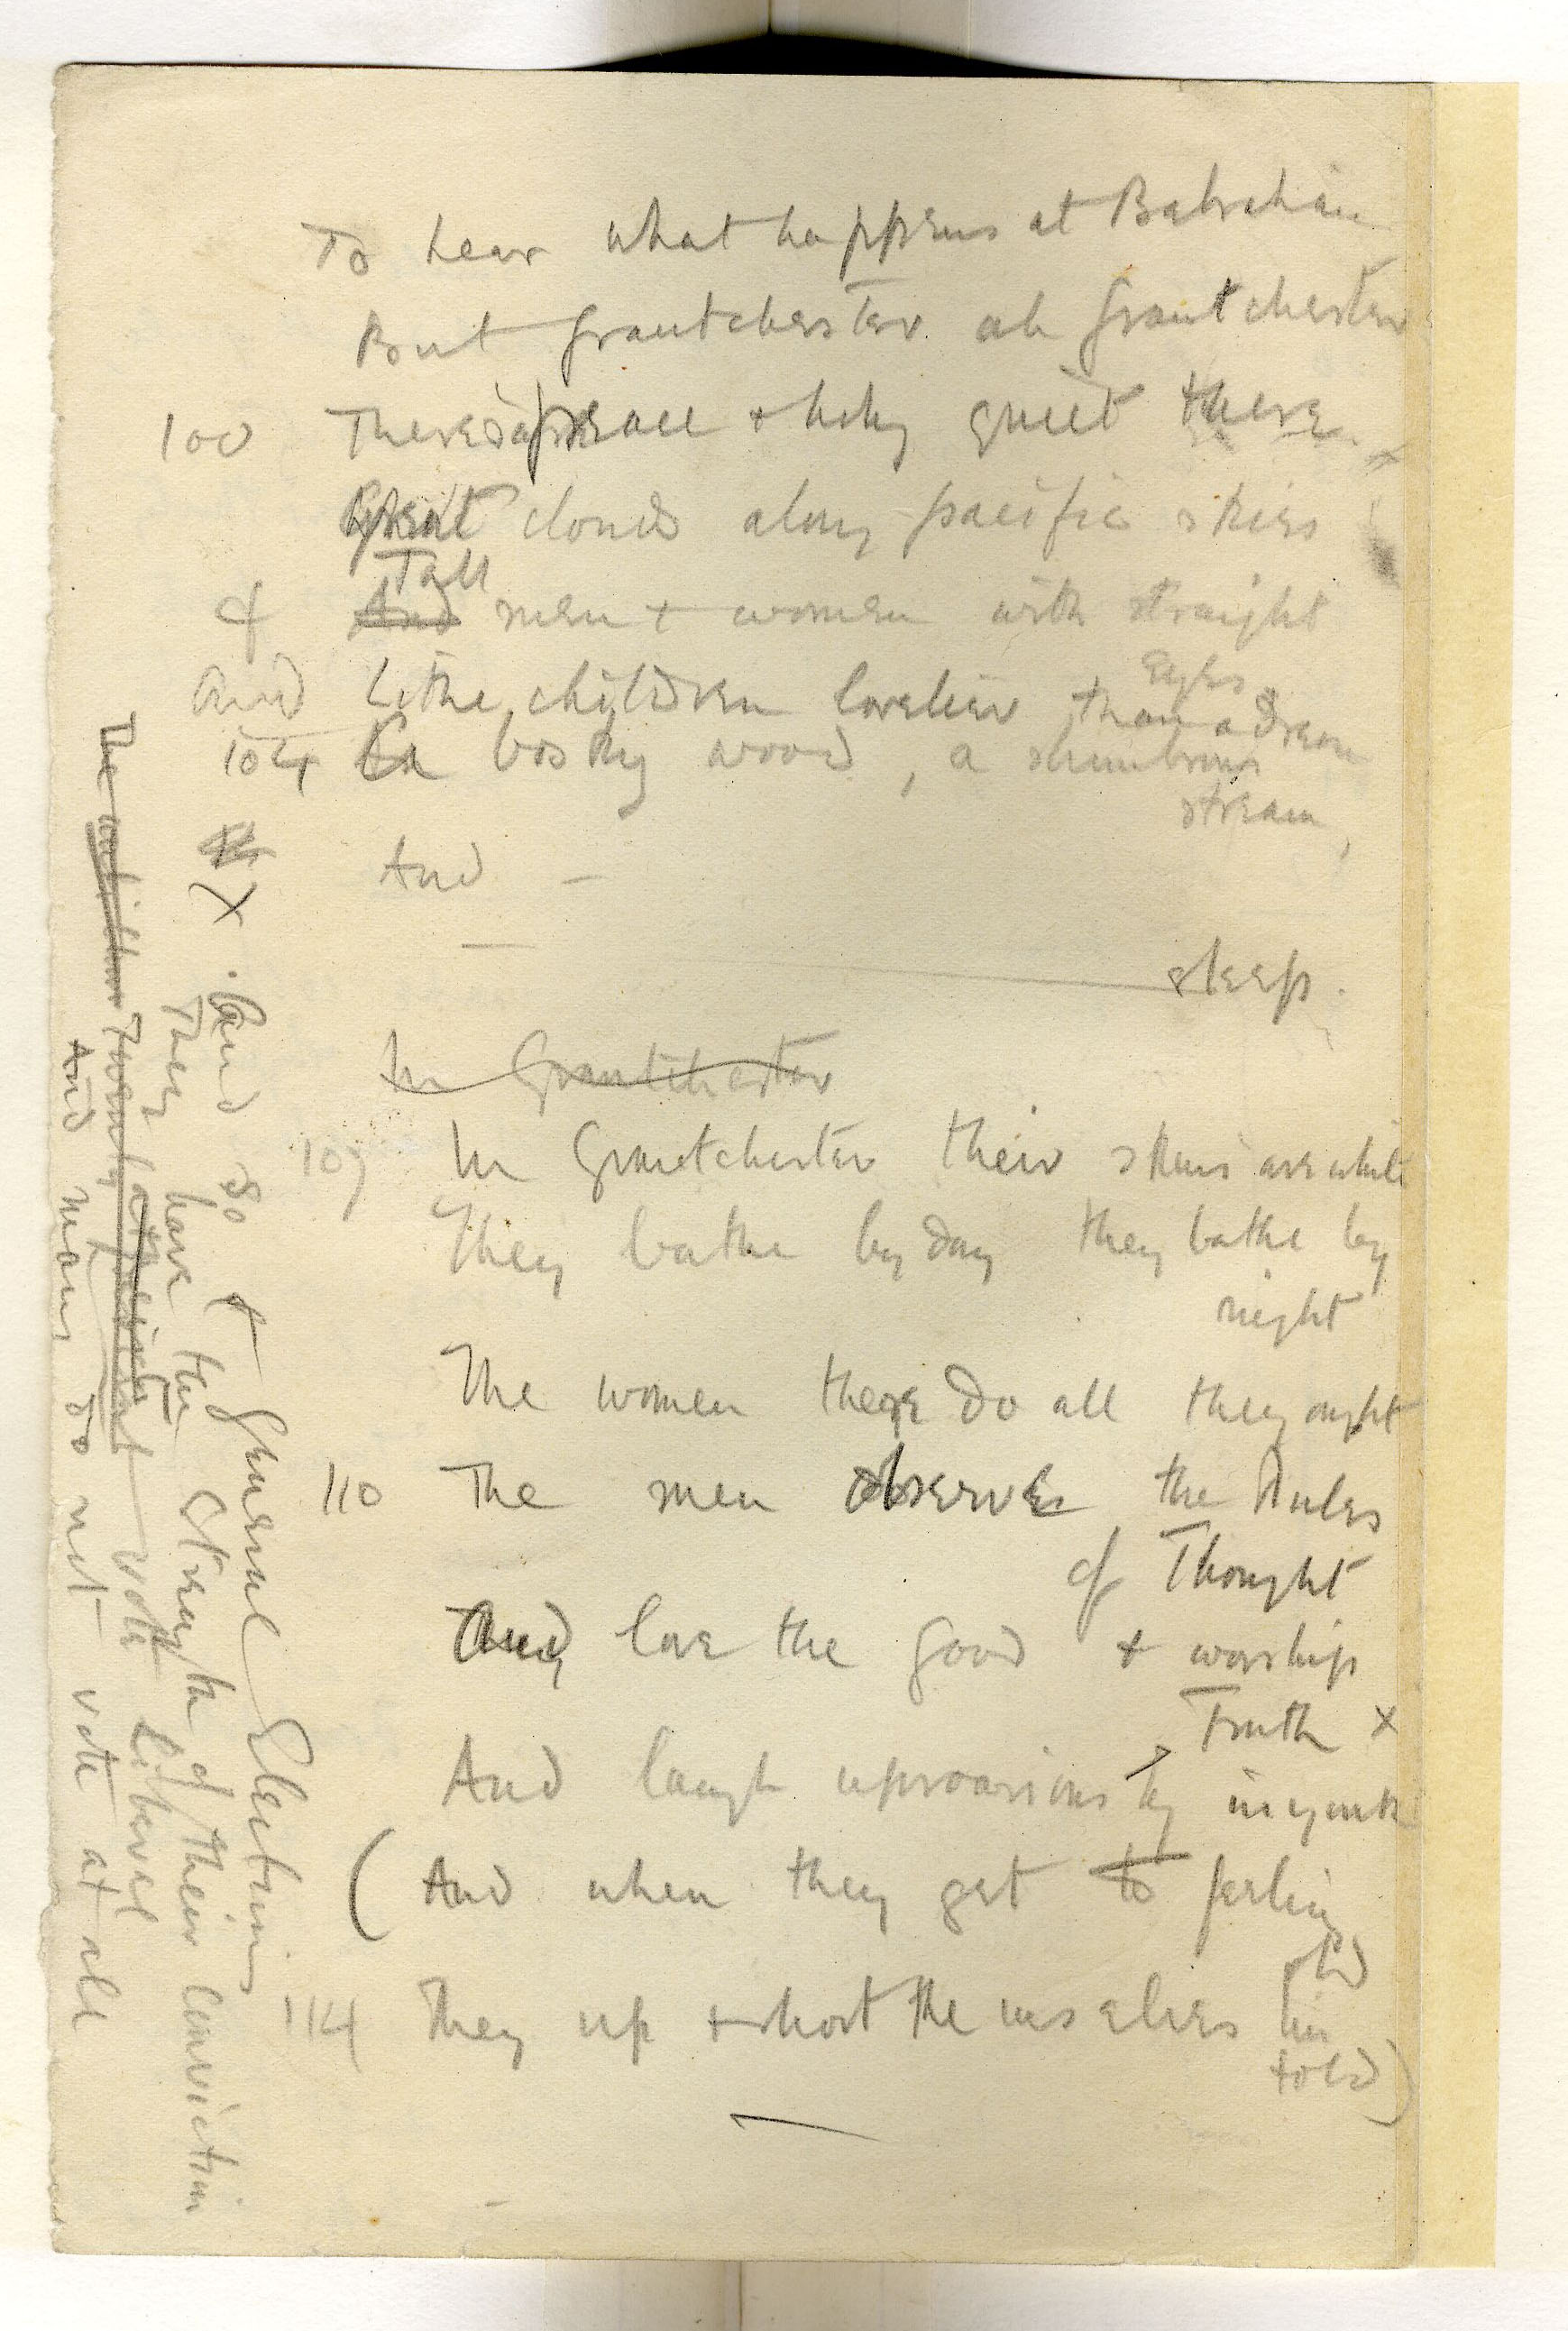 To hear what happens at Babraham
But Grantchester. ah Grantchester
100 There's peace + holy quiet there
Great clouds along pacific skies
Tall
& And men + women with straight
Eyes
And Lithe children lovelier than a dream
104 A bosky wood, a slumbrous
stream,
And –
sleep.
In Grantchester
107 In Grantchester their skins are white
They bathe by day they bathe by
night
The women there do all they ought
110 The men observe the Rules
of Thought
They love the Good + worship
Truth x
And laugh uproariously in youth
(And when they get to feeling
old
114 They up + shoot themselves I'm
told)
X. And so + General Election
They have the strength of their conviction
Twenty at vote Liberal
And many do not vote at all